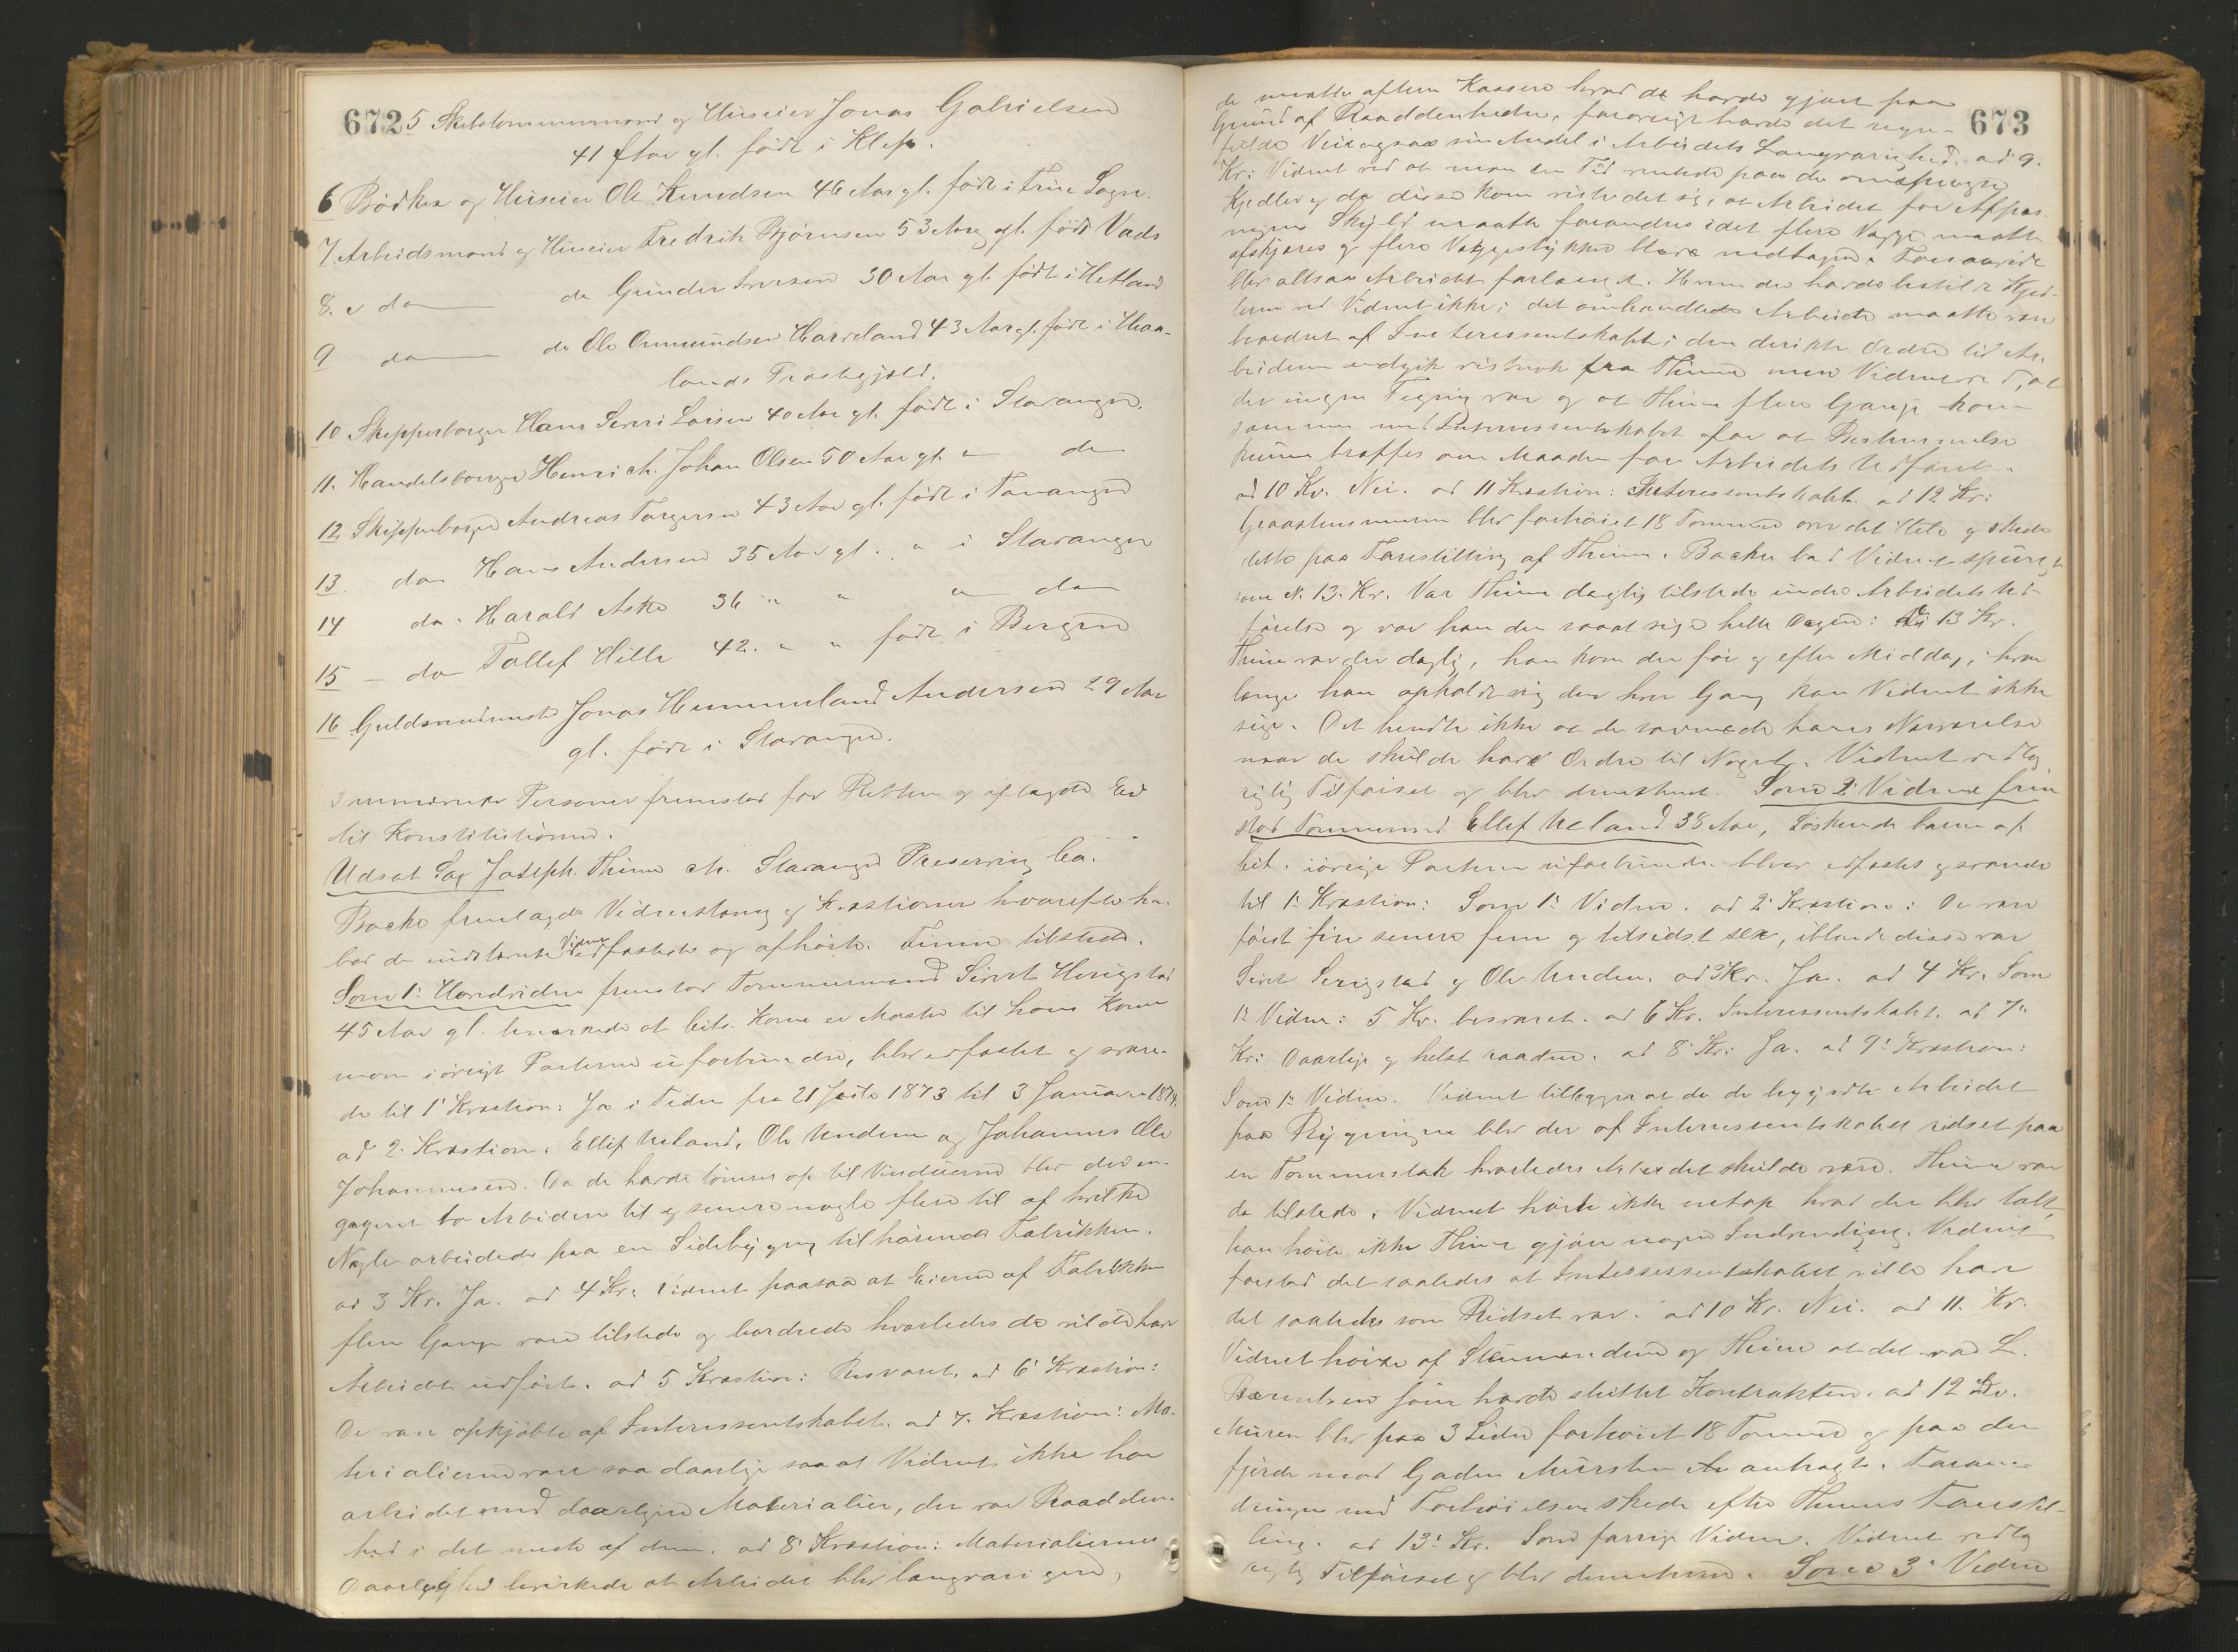 672
5 Skibstømmermand og Huseier Jonas Gabrielsen
41 Aar gl. født i Klep.
6 Bødker og Huseier Ole Knudsen 46 Aar gl. født i Time Sogn.
7 Arbeidsmand og Huseier Fredrik Bjørnsen 53 Aar gl. født Vads
8. do do Gunder Iversen 30 Aar gl. født i Hetland
9 do do Ole Ommundsen Harveland 43 Aar gl. født i Haa-
lands Præstegjeld.
10 Skipperborger Hans Severi Larsen 40 Aar gl. født i Stavanger.
11. Handelsborger Henrich Johan Olsen 50 Aar gl. " do
12 Skipperborger Andreas Torgersen 43 Aar gl. født i Tananger
13 do Hans Andersen 35 Aar gl. " i Stavanger
14 do. Harald Aske 36 " " " do
15 - do Tollef Hille 42. " " født i Bergen
16 Guldsmedmester Jonas Hummeland Andersen 29 Aar
gl. født i Stavanger.
Personer fremstod for Retten og aflagde Ed
til Konstitutionen.
Udsat Sag Joseph Thime ctr. Stavanger Preserving Co.
Backe fremlagde Vidnestævning og Kvæstioner hvorefter han
bad de indstævnte Vidner edfæstede og afhørte. Timme tilstede.
Som 1ste Hovedvidne fremstod Tømmermand Sivert Herigstad
45 Aar gl. bemærkede at Cits. Kone er Moster til hans Kone
men iøvrigt Parterne uforbunden, blev edfæstet og svare-
de til 1ste Kvæstion: Ja i Tiden fra 21 Juli 1873 til 3 Januar 1874.
ad 2. Kvæstion. Ellef Ueland, Ole Undem og Johannes Ole
Johannesen. Da de havde tømret op til Vinduerne blev der en-
gageret to Arbeidere til og senere nogle flere til af hvilke
Nogle arbeidede paa en Sidebygning tilhørende Fabrikken.
ad 3 Kv. Ja. ad 4 Kv: Vidnet paasaa at Eierne af Fabrikken
flere Gange vare tilstede og bordrede hvorledes de vilde have
Arbeidet udført. ad 5 Kvæstion: Besvaret. ad 6 Kvæstion:
De vare opkjøbte af Interessentskabet. ad 7. Kvæstion: Ma-
terialierne vare saa daarlige saa at Vidnet ikke har
arbeidet med daarligere Materialier, der var Raadden-
hed i det meste af dem. ad 8 Kvæstion: Materialiernes
Daarlighed bevirkede at Arbeidet blev langvarigere,
673
de maatte oftere Kassere hvad de havde gjort paa
Grund af Raaddenheden, forøvrigt havde det regn-
fulde Veir ogsaa sin Andel i Arbeidets Langvarighed. ad 9.
Kv: Vidnet ved at man en Tid ventede paa de omspurgte
Kjedler og da disse kom viste det sig, at Arbeidet for Afpas-
ningens Skyld maatte forandres idet flere Vægge maatte
afskjæres og flere Væggestykker bleve nedtagne. Forsaavidt
blev altsaa Arbeidet forlænget. Hvem der havde bestilt Kjed-
lerne ved Vidnet ikke; det omhandlede Arbeide maatte være
beordret af Interessentskabet; den direkte Ordre til Ar-
beiderne udgik vistnok fra Thime men Vidnet ved, at
der ingen Tegning var og at Thime flere Gange kom
sammen med Interessentskabet for at Bestemmelse
kunne træffes om Maaden for Arbeidets Udførelse.
ad 10 Kv. Nei. ad 11 Kvæstion: Interessentskabet. ad 12 Kv:
Graastensmuren blev forhøiet 18 Tommer om det Hele og skede
dette paa Forestilling af Thime. Backe bad Vidnet spurgt
som N. 13. Kv. Var Thime daglig tilstede under Arbeidets Ud-
førelse og var han der saaatsige hele Dagen: 13 Kv.
Thime var der daglig, han kom der før og efter Middag, hvor
længe han opholdt sig der hver Gang kan Vidnet ikke
sige. Det hendte ikke at de savnede hans Nærværelse
naar de skulde have Ordre til Noget. Vidnet vedtog
rigtig Tilførsel og blev demitteret. Som 2 Vidne frem
stod Tømmermand Ellef Ueland 38 Aar, Søskende barn af
Cit. iøvrigt Parterne uforbunden blev edfæstet og svarede
til 1ste Kvæstion: Som 1ste Vidne. ad 2 Kvæstion: De vare
først fire senere fem og tilsidst sex, iblandt disse var
Sivert Serigstad og Ole Undem. ad 3 Kv. Ja. ad 4 Kv. Som
1ste Vidne: 5 Kv. besvaret. ad 6 Kv. Interessentskabet. ad 7de
Kv: Daarlige og helst raadne. ad 8 Kv: Ja. ad 9. Kvæstion:
Som 1ste Vidne. Vidnet tillægger at da de begyndte Arbeidet
paa Bygningen blev der af Interessentskabet ridset paa
en Tømmerstok hvorledes Arbeidet skulde være. Thime var
da tilstede. Vidnet hørte ikke netop hvad der blev talt,
han hørte ikke Thime gjøre nogen Indvending. Vidnet
forstod det saaledes at Interessentskabet vilde have
det saaledes som Ridset var. ad 10 Kv. Nei. ad 11. Kv.
Vidnet hørte af Stenmændene og Thime at det var L.
Berentsen som havde sluttet Kontrakten. ad 12 Kv.
Muren blev paa 3 Sider forhøiet 18 Tommer og paa den
fjerde mod Gaden Mursten anbragt. Foran-
dringen med Forhøielsen skede efter Thimes Forestil-
ling. ad 13. Kv. Som forrige Vidne. Vidnet vedtog
rigtig Tilførsel og blev demitteret. Som 3de Vidne